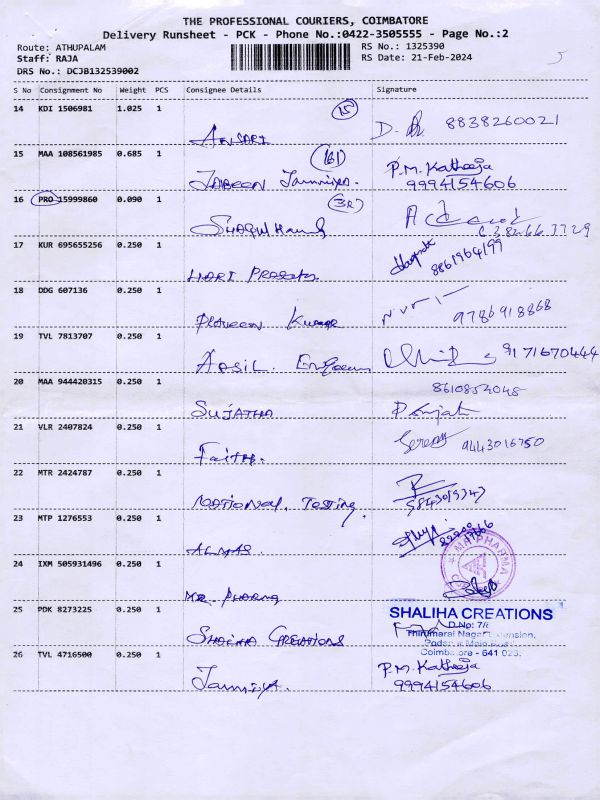 THE PROFESSIONAL COURIERS, COIMBATORE
Delivery Runsheet - PCK - Phone No.:0422-3505555 - Page No.:2
Route: ATHUPALAM RS No.: 1325390
Staff: RAJA RS Date: 21-Feb-2024
DRS No.: DCJB132539002
S No Consignment No Weight PCS Consignee Details Signature
14 KDI 1506981 1.025 1 15
ANSARI 8838260021
15 MAA 108561985 0.685 1 161 P.M. Katheeja
JABEEN 9994154606
16 PRO 15999860 0.090 1
17 KUR 695655256 0.250 1 8861964199
HARI
18 DDG 607136 0.250 1
Praveen Kumar 9786918868
19 TVL 7813707 0.250 1
9171670444
20 MAA 944420315 0.250 1 8610854048
SUJATHA
21 VLR 2407824 0.250 1 9443016750
Faith.
22 MTR 2424787 0.250 1
National. Testing. 9843019343
23 MTP 1276553 0.250 1
ALMAS.
24 IXM 505931496 0.250 1 PHARMA
MR. PHARMA
25 PDK 8273225 0.250 1 SHALIHA CREATIONS
D.No: 7/
Shaliha Creations Thirumarai Nagar Extension,
Coimbatore - 641 023.
26 TVL 4716500 0.250 1 P.M. Katheeja
9994154606